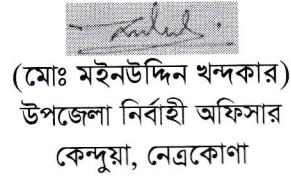 (মোঃ মইনউদ্দিন খন্দকার)
উপজেলা নির্বাহী অফিসার
কেন্দুয়া, নেত্রকোণা